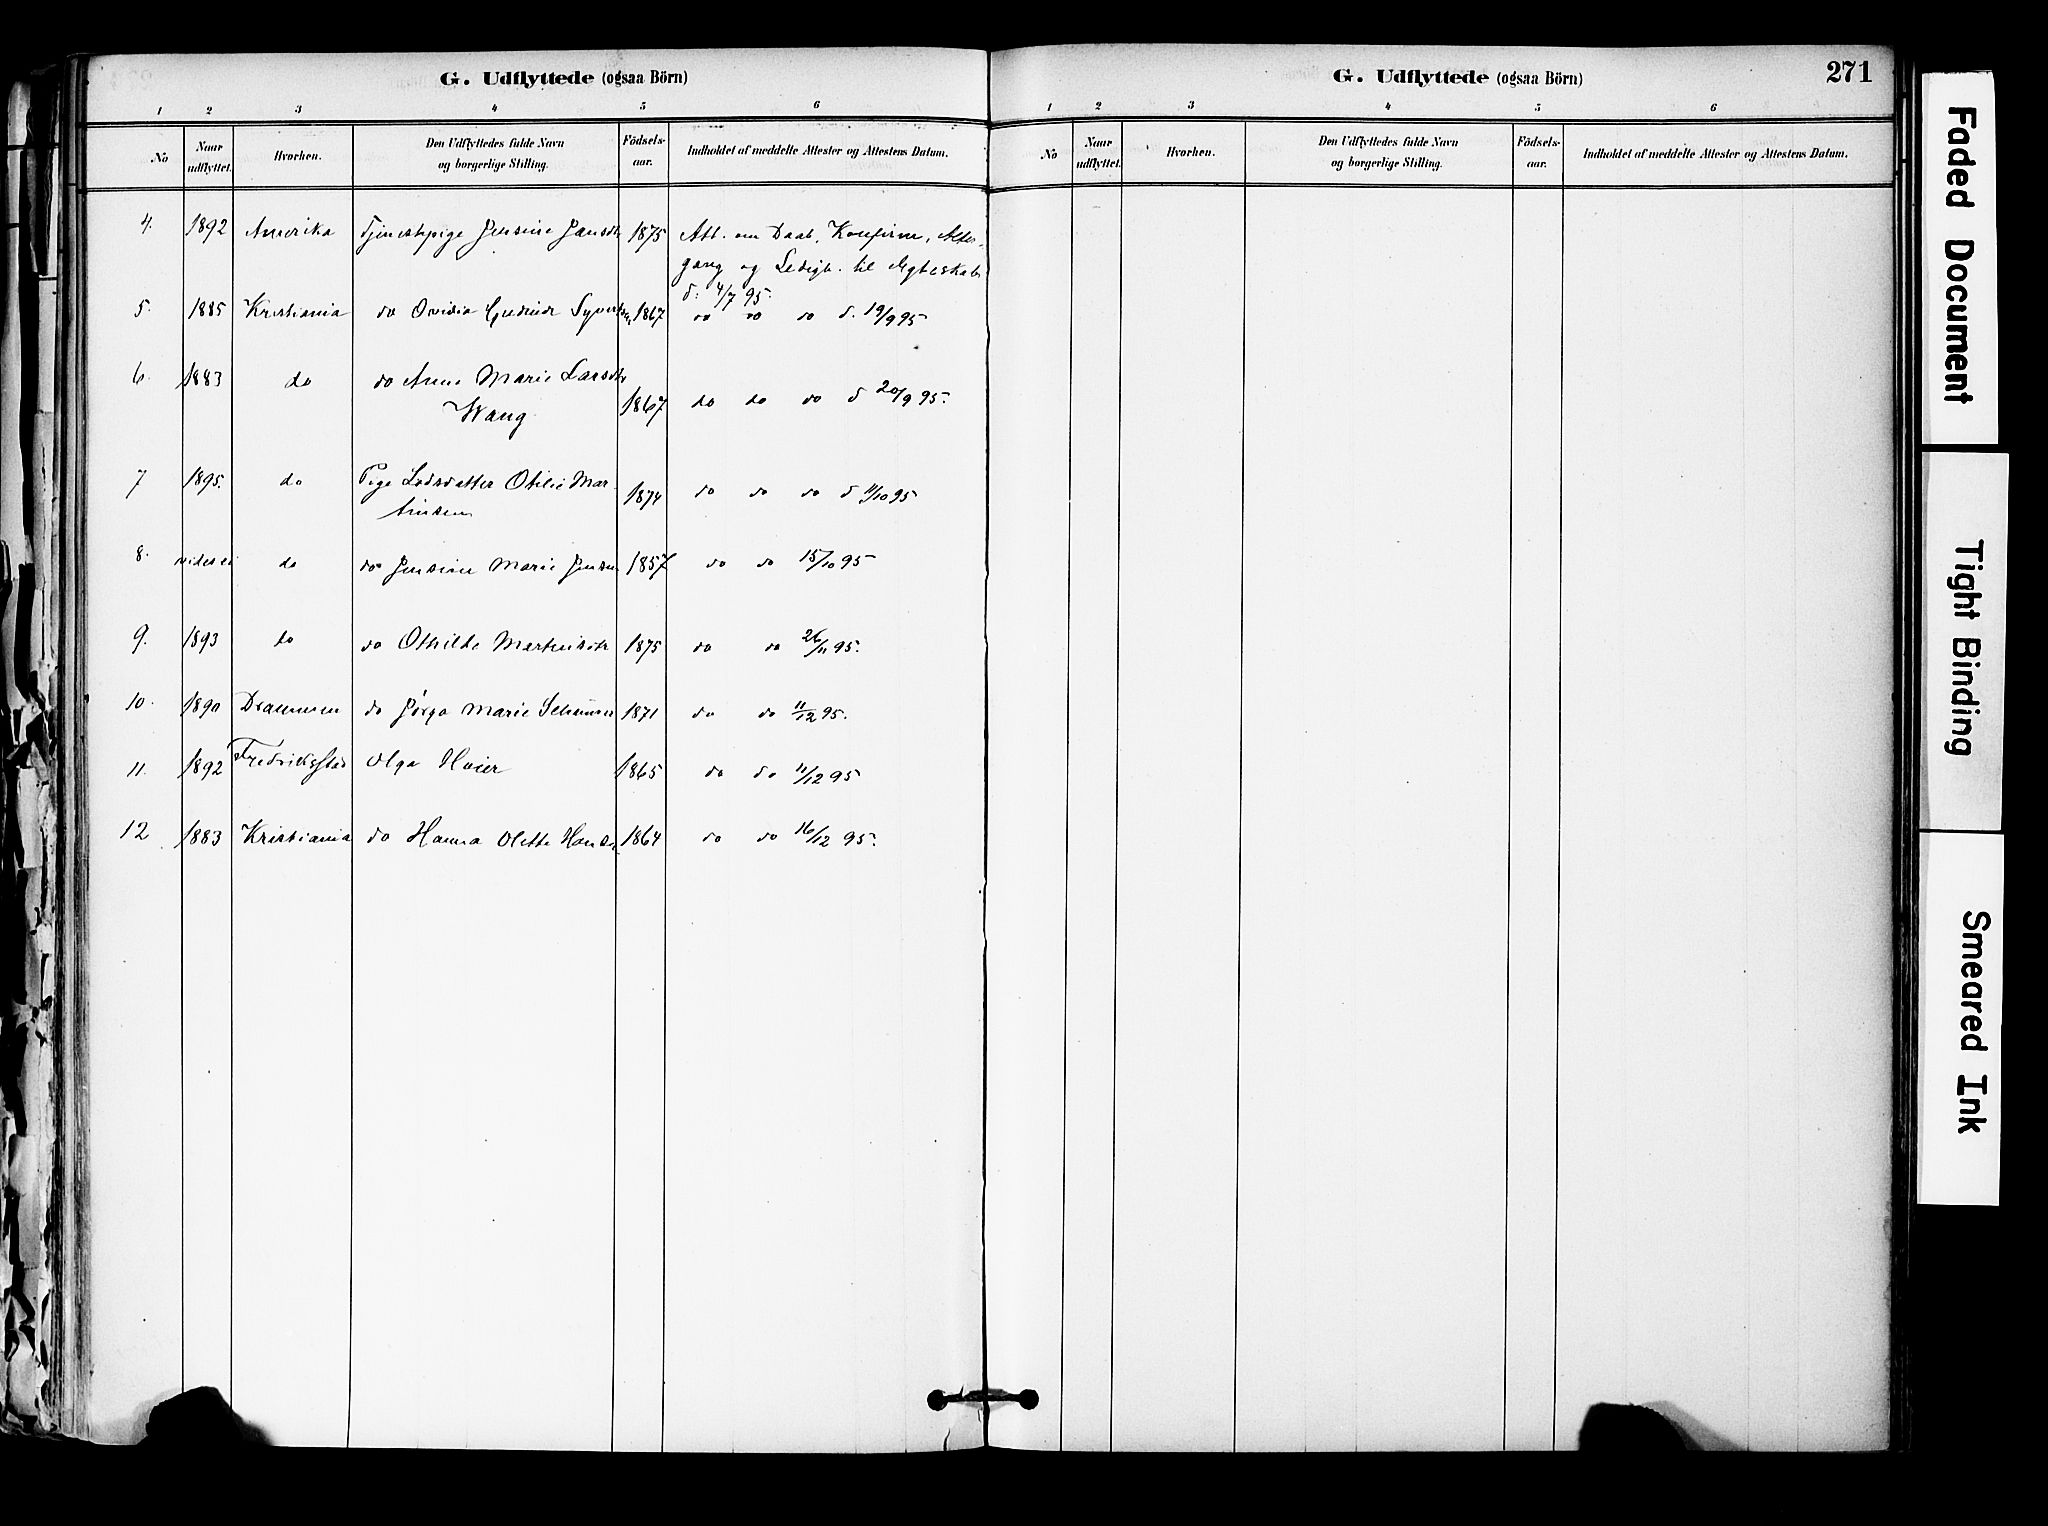 G. Udflyttede (ogsaa Börn)
1 2 3 4 5 6
No Naar udflyttet. Hvorhen. Den Udflyttedes fulde Navn og borgerlige Stilling. Födsels-aar. Indholdet af meddelte Attester og Attestens Datum.
4. 1892 Amerika Tjenestepige Jensine Jansdtr 1875 Att. om Daab, Konfirm, Alter-
gang og Ledigh. til Ægteskab
d: 4/7 95.
5. 1885 Kristiania do Ovidia Gudrun Syverts 1867 do do do d. 19/9 95
6. 1883 do do Anne Marie Larsdtr
Wang 1867 do do do d 20/9 95.
7 1895. do Pige Lodsdatter Otilie Mar-
tinsen 1874 do do do d 11/10 95
8. do do Jensine Marie Jensen 1857 do do 15/10 95
9. 1893 do do Othilde Martinsdtr 1875 do do 26/11 95.
10. 1890 Drammen do Jørga Marie 1871 do do 11/12 95.
11. 1892 Fredriksstad Olga Høier 1865 do do 11/12 95
12 1883 Kristiania do Hanna Olette Hansen 1864 do do 16/12 95.
G. Udflyttede (ogsaa Börn) 271
1 2 3 4 5 6
No Naar udflyttet. Hvorhen. Den Udflyttedes fulde Navn og borgerlige Stilling. Födsels-aar. Indholdet af meddelte Attester og Attestens Datum.
Faded Document
Tight Binding
Smeared Ink